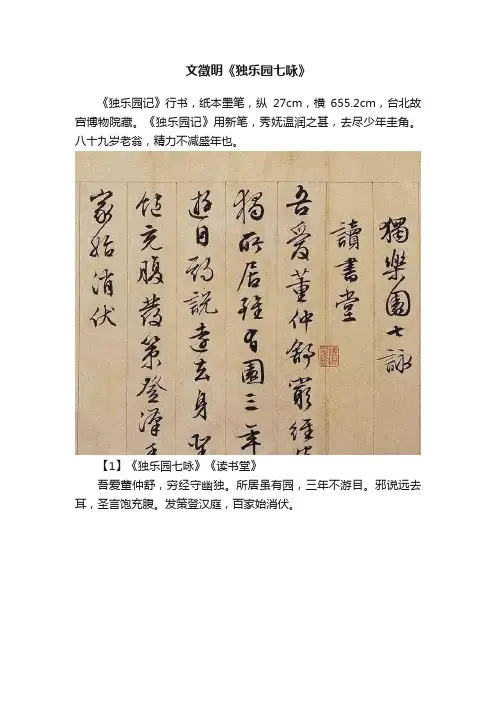 文徵明《独乐园七咏》
《独乐园记》行书，纸本墨笔，纵27cm，横655.2cm，台北故
宫博物院藏。《独乐园记》用新笔，秀妩温润之甚，去尽少年圭角。
八十九岁老翁，精力不减盛年也。
獨樂園七詠
讀書堂
吾愛董仲舒窮經
獨所居雖有園三年
遊目邪說遠去耳聖
飽充腹發策登漢
家始消伏
【1】《独乐园七咏》《读书堂》
吾爱董仲舒，穷经守幽独。所居虽有园，三年不游目。邪说远去
耳，圣言饱充腹。发策登汉庭，百家始消伏。